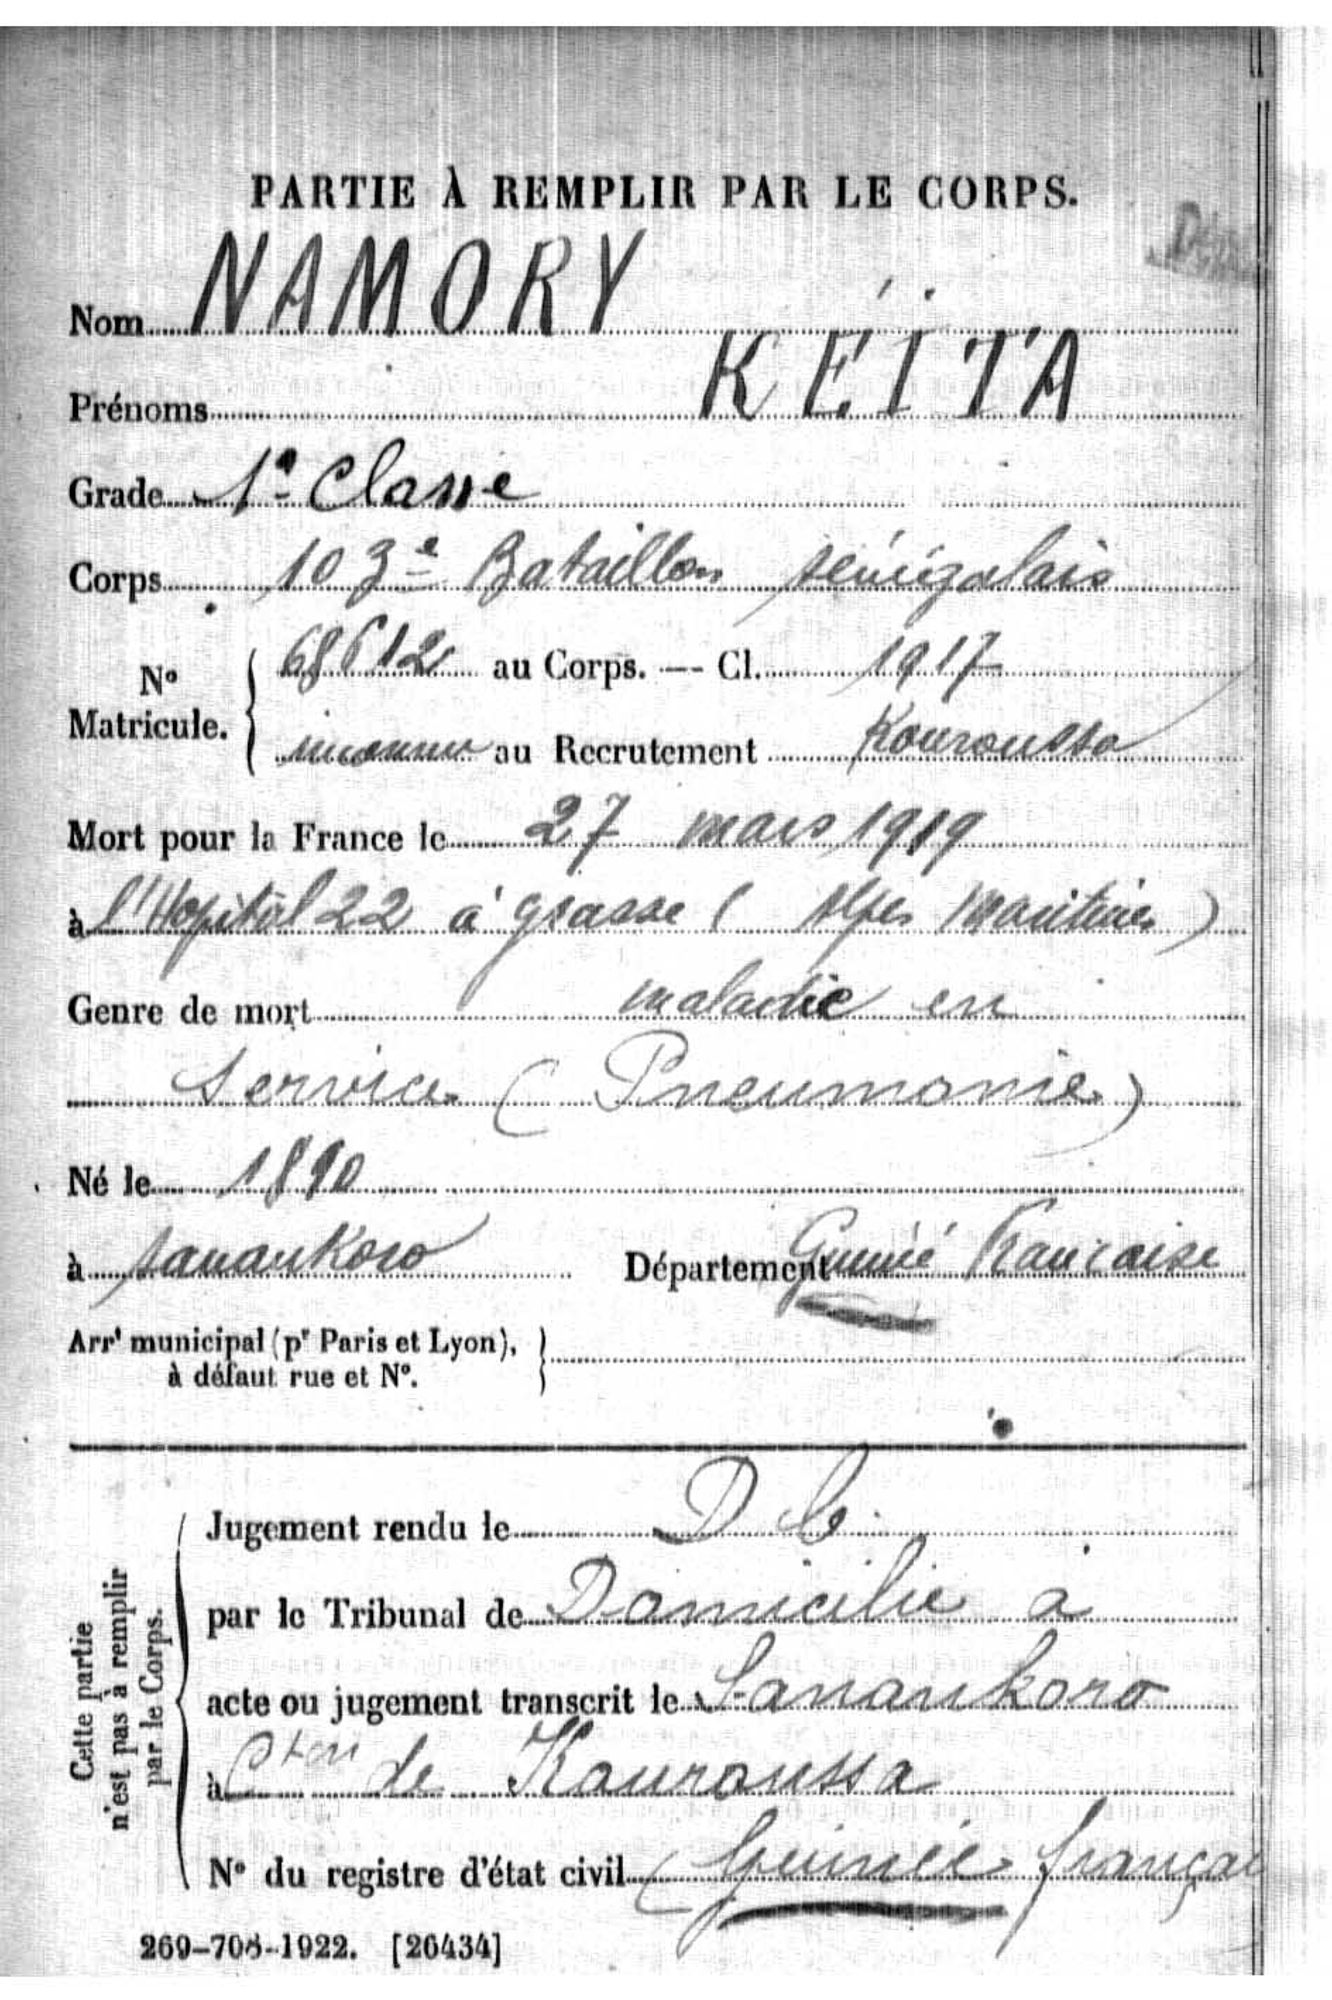 PARTIE À REMPLIR PAR LE CORPS.
Nom NAMORY
Prénoms KÉÏTA
Grade 1e Classe
Corps 103e Bataillon sénégalais
No Matricule. 68612 au Corps. — Cl. 1917
inconnu au Recrutement Kouroussa
Mort pour la France le 27 mars 1919
à l'Hopital 22 à grasse ( Alpes Maritimes )
Genre de mort maladie en
service ( Pneumonie )
Né le 1890
à Sanankoro Département Guinée Française
Arrt municipal (pr Paris et Lyon),
à défaut rue et No.
Cette partie
n'est pas à remplir
par le Corps.
Jugement rendu le D C
par le Tribunal de Domicilié à
acte ou jugement transcrit le Sanankoro
à Cton de Kouroussa
No du registre d'état civil ( Guinée françai
269-708-1922. [26434]